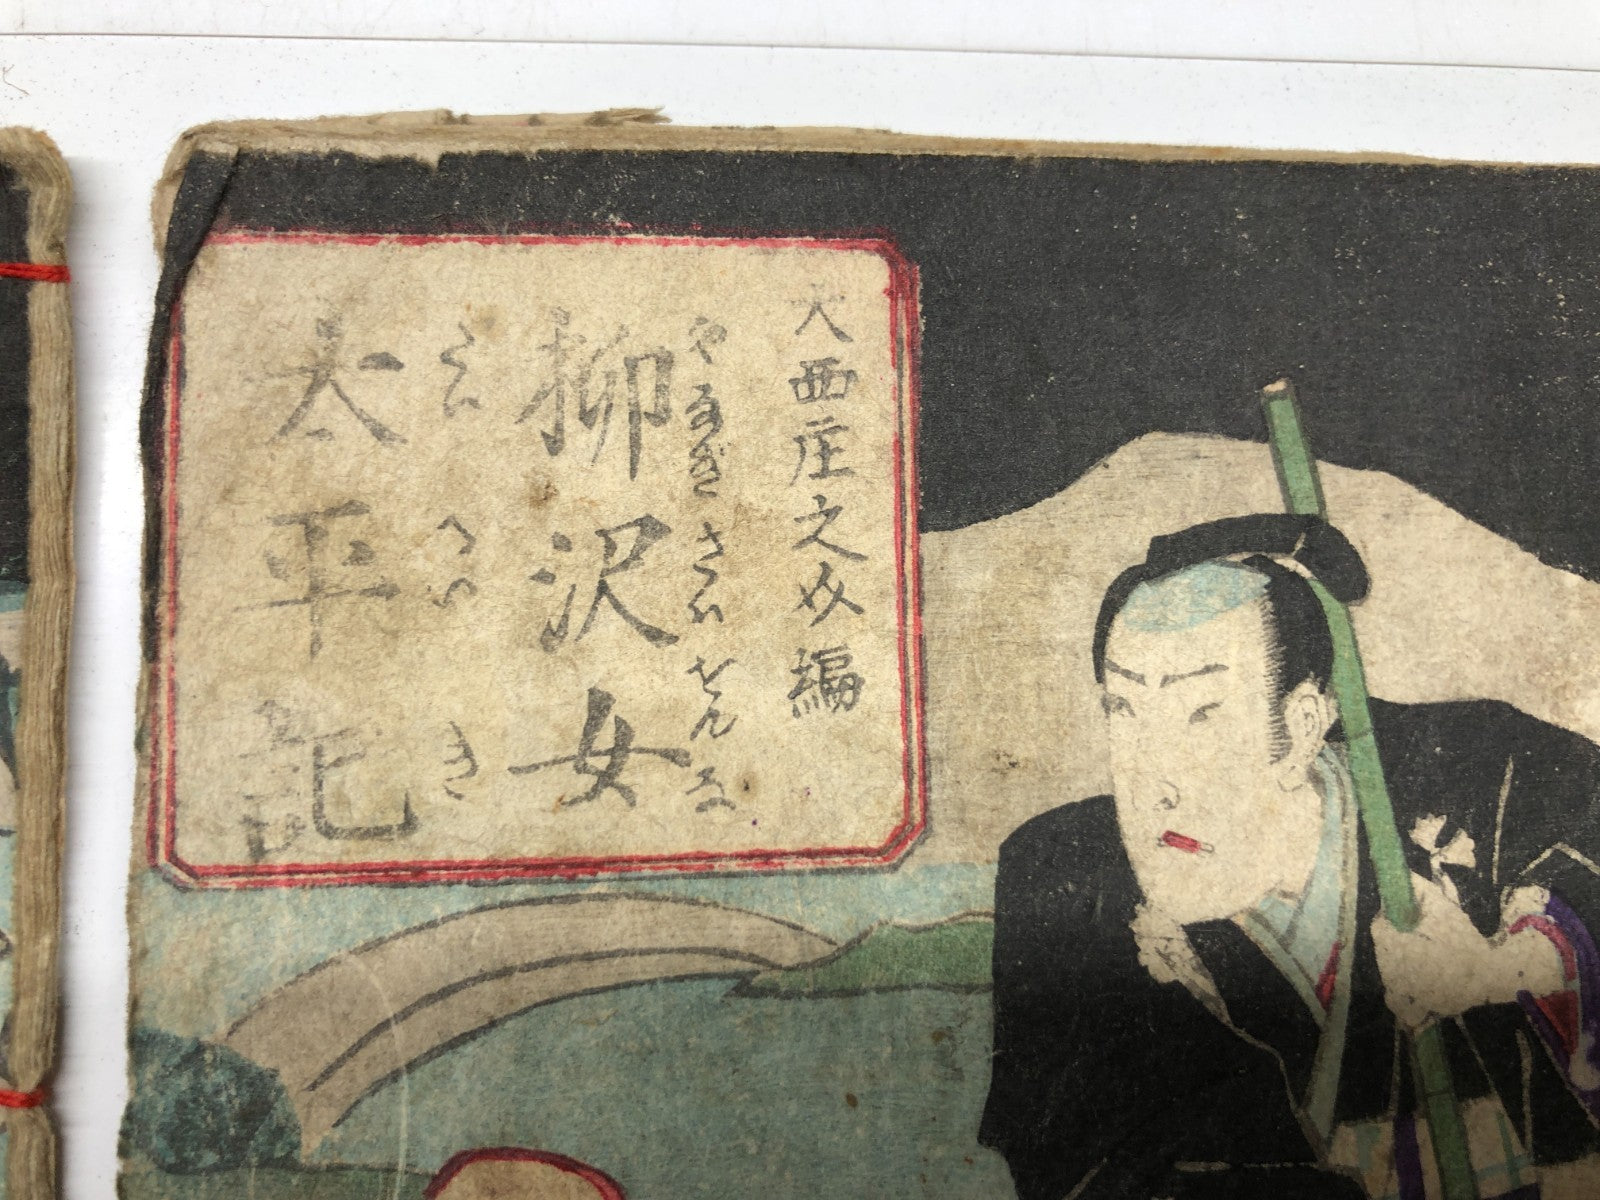 大西庄之助編
やなぎさはをんな
柳沢女
たいへいき
太平記